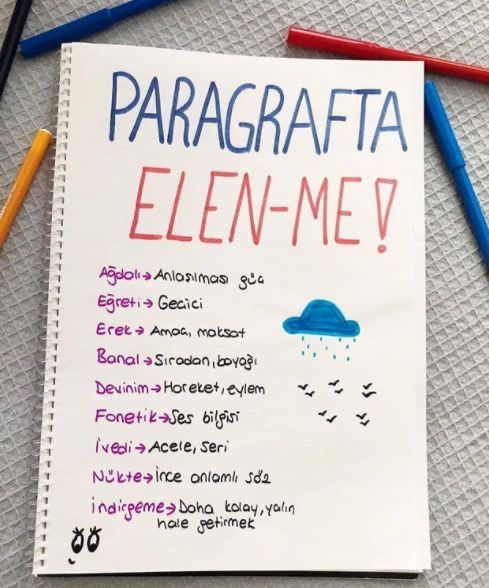 PARAGRAFTA
ELEN-ME!
Ağdalı→Anlaşılması güç
Eğreti→Geçici
Erek→Amaç, maksat
Banal→Sıradan, bayağı
Devinim→Hareket, eylem
Fonetik→Ses bilgisi
İvedi→Acele, seri
Nükte→İnce anlamlı söz
İndirgeme→Daha kolay, yalın
hale getirmek